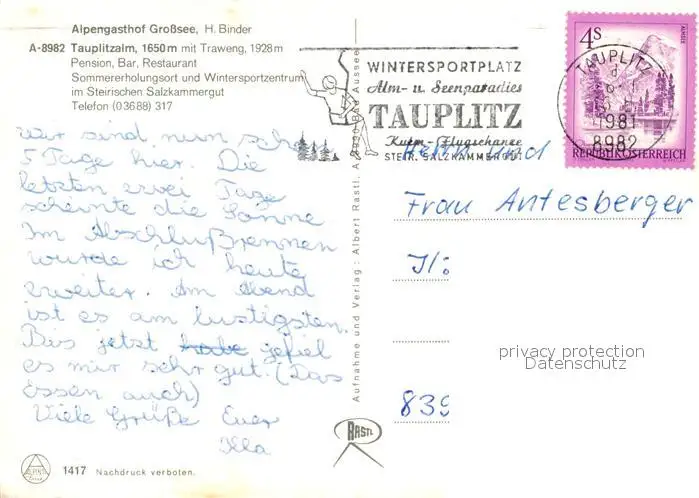 Alpengasthof Großsee, H. Binder
A-8982 Tauplitzalm, 1650 m mit Traweng, 1928 m
Pension, Bar, Restaurant
Sommererholungsort und Wintersportzentrum
im Steirischen Salzkammergut
Telefon (0 36 88) 317
wir sind nun scho
5 Tage hier. Die
letzten zwei Tage
scheinte die Sonne
Im Abschlußrennen
wurde ich heute
zweiter. Am Abend
ist es am lustigsten.
Bis jetzt habe gefiel
es mir sehr gut. (Das
Essen auch)
Viele Grüße Euer
1417 Nachdruck verboten.
Aufnahme und Verlag: Albert Rastl, A-8990 Bad Aussee
RASTL
WINTERSPORTPLATZ
Alm- u. Seenparadies
TAUPLITZ
Kulm-Flugschanze
STEIR. SALZKAMMERGUT
4S
ALMSEE
REPUBLIK ÖSTERREICH
TAUPLITZ
1981
8982
Herrn und
Frau Antesberger
839
privacy protection
Datenschutz